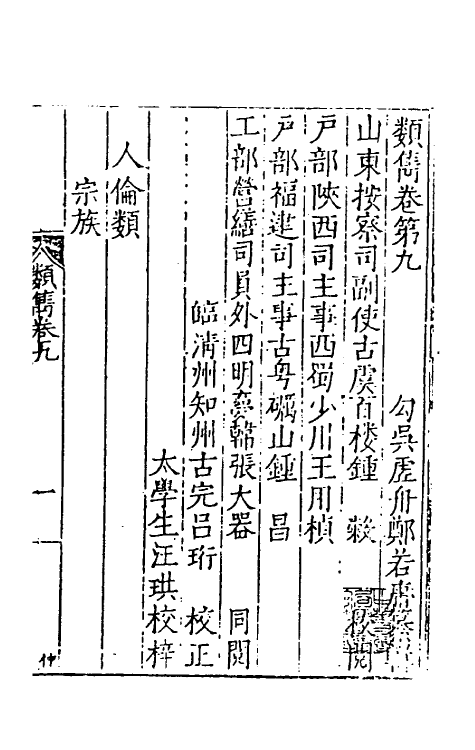 類雋卷第九 勾吳虛舟鄭若庸
山東按察司副使古虞百楼鍾 穀 校閱
戶部陜西司主事西蜀少川王用楨
戶部福建司主事古粤礪山鍾 昌
工部營繕司員外四明張大器 同閱
臨清州知州古完呂珩 校正
太學生汪珙校梓
人倫類
宗族
類雋卷九
一
仲